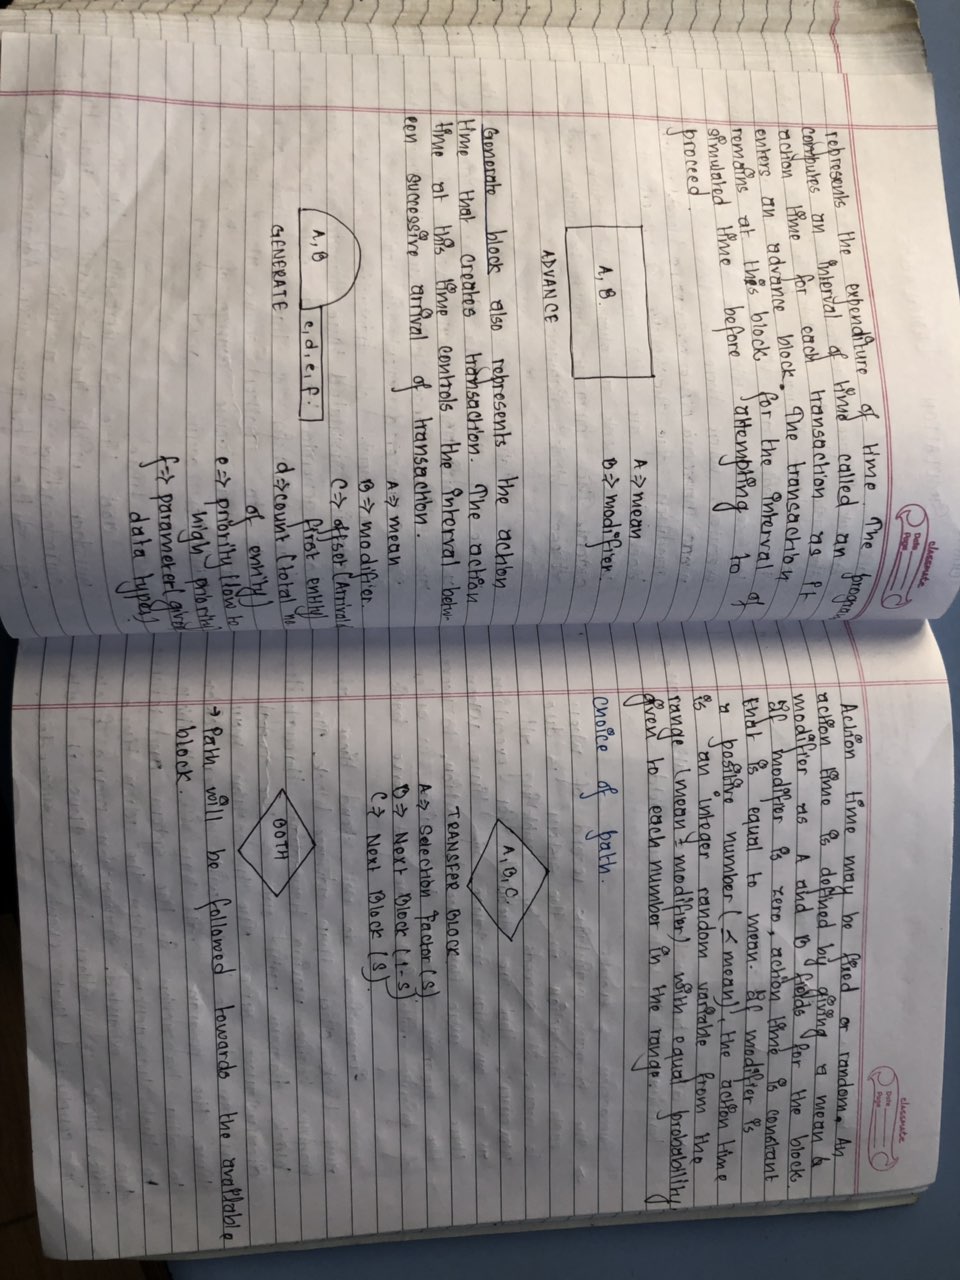 classmate
Date
Page
represents the expenditure of time. The progra
computes an interval of time called an
action time for each transaction as it
enters an advance block. The transaction
remains at this block for the interval of
simulated time before attempting to
proceed.
A, B.
ADVANCE
A => mean
B => modifier.
Generate block also represents the action
time that creates transaction. The action
time at this time controls the interval betw-
een successive arrival of transaction.
A, B
c, d, e, f.
GENERATE
A => mean
B => modifier
C => offset (Arrival
first entity)
d => count (total no
of entity)
e => priority (low to
high priority)
f => parameter (give
data types)
classmate
Date
Page
Action time may be fixed or random. An
action time is defined by giving a mean &
modifier as A and B fields for the blocks.
If modifier is zero, action time is constant
that is equal to mean. If modifier is
a positive number (≤ mean), the action time
is an integer random variable from the
range (mean ± modifier) with equal probability
given to each number in the range.
choice of path.
A, B, C.
TRANSFER BLOCK
A => Selection Factor (S)
B => Next Block (1-S)
C => Next Block (S)
BOTH
→ Path will be followed towards the available
block.